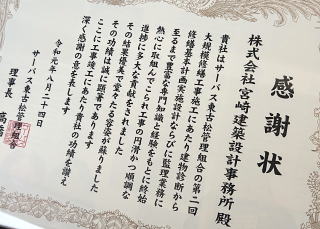 感謝状
株式会社宮崎建築設計事務所 殿
貴社はサーパス東古松管理組合の第二回
大規模修繕工事施工にあたり建物診断から
修繕基本計画実施設計ならびに監理業務に
至るまで豊富な専門知識と経験をもとに終始
熱心に取組んでこられ工事の円滑かつ順調な
進捗に多大な貢献をされました
その結果優美で愛をたたえる容姿が蘇りました
その功績は誠に顕著であります
ここに工事竣工にあたり貴社の功績を讃え
深く感謝の意を表します
令和元年八月二十四日
サーパス東古松管理組合
理事長